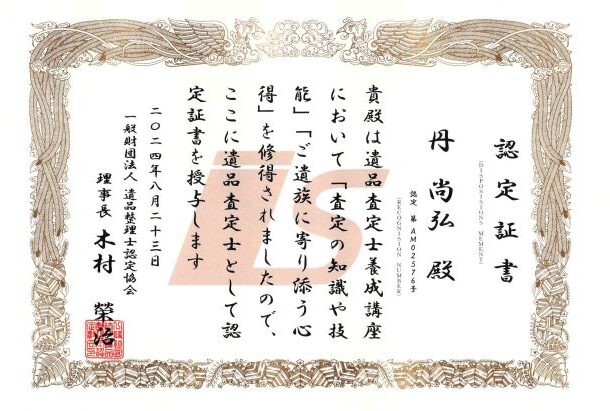 認定証書
(DISPOSITIONS MEMENT)
丹 尚弘 殿
認定 第 AM02576号
(RECOGNISION NUMBER)
貴殿は遺品査定士養成講座
において「査定の知識や技
能」「ご遺族に寄り添う心
得」を修得されましたので、
ここに遺品査定士として認
定証書を授与します
二〇二四年八月二十三日
一般財団法人 遺品整理士認定協会
理事長 木村 榮治
is